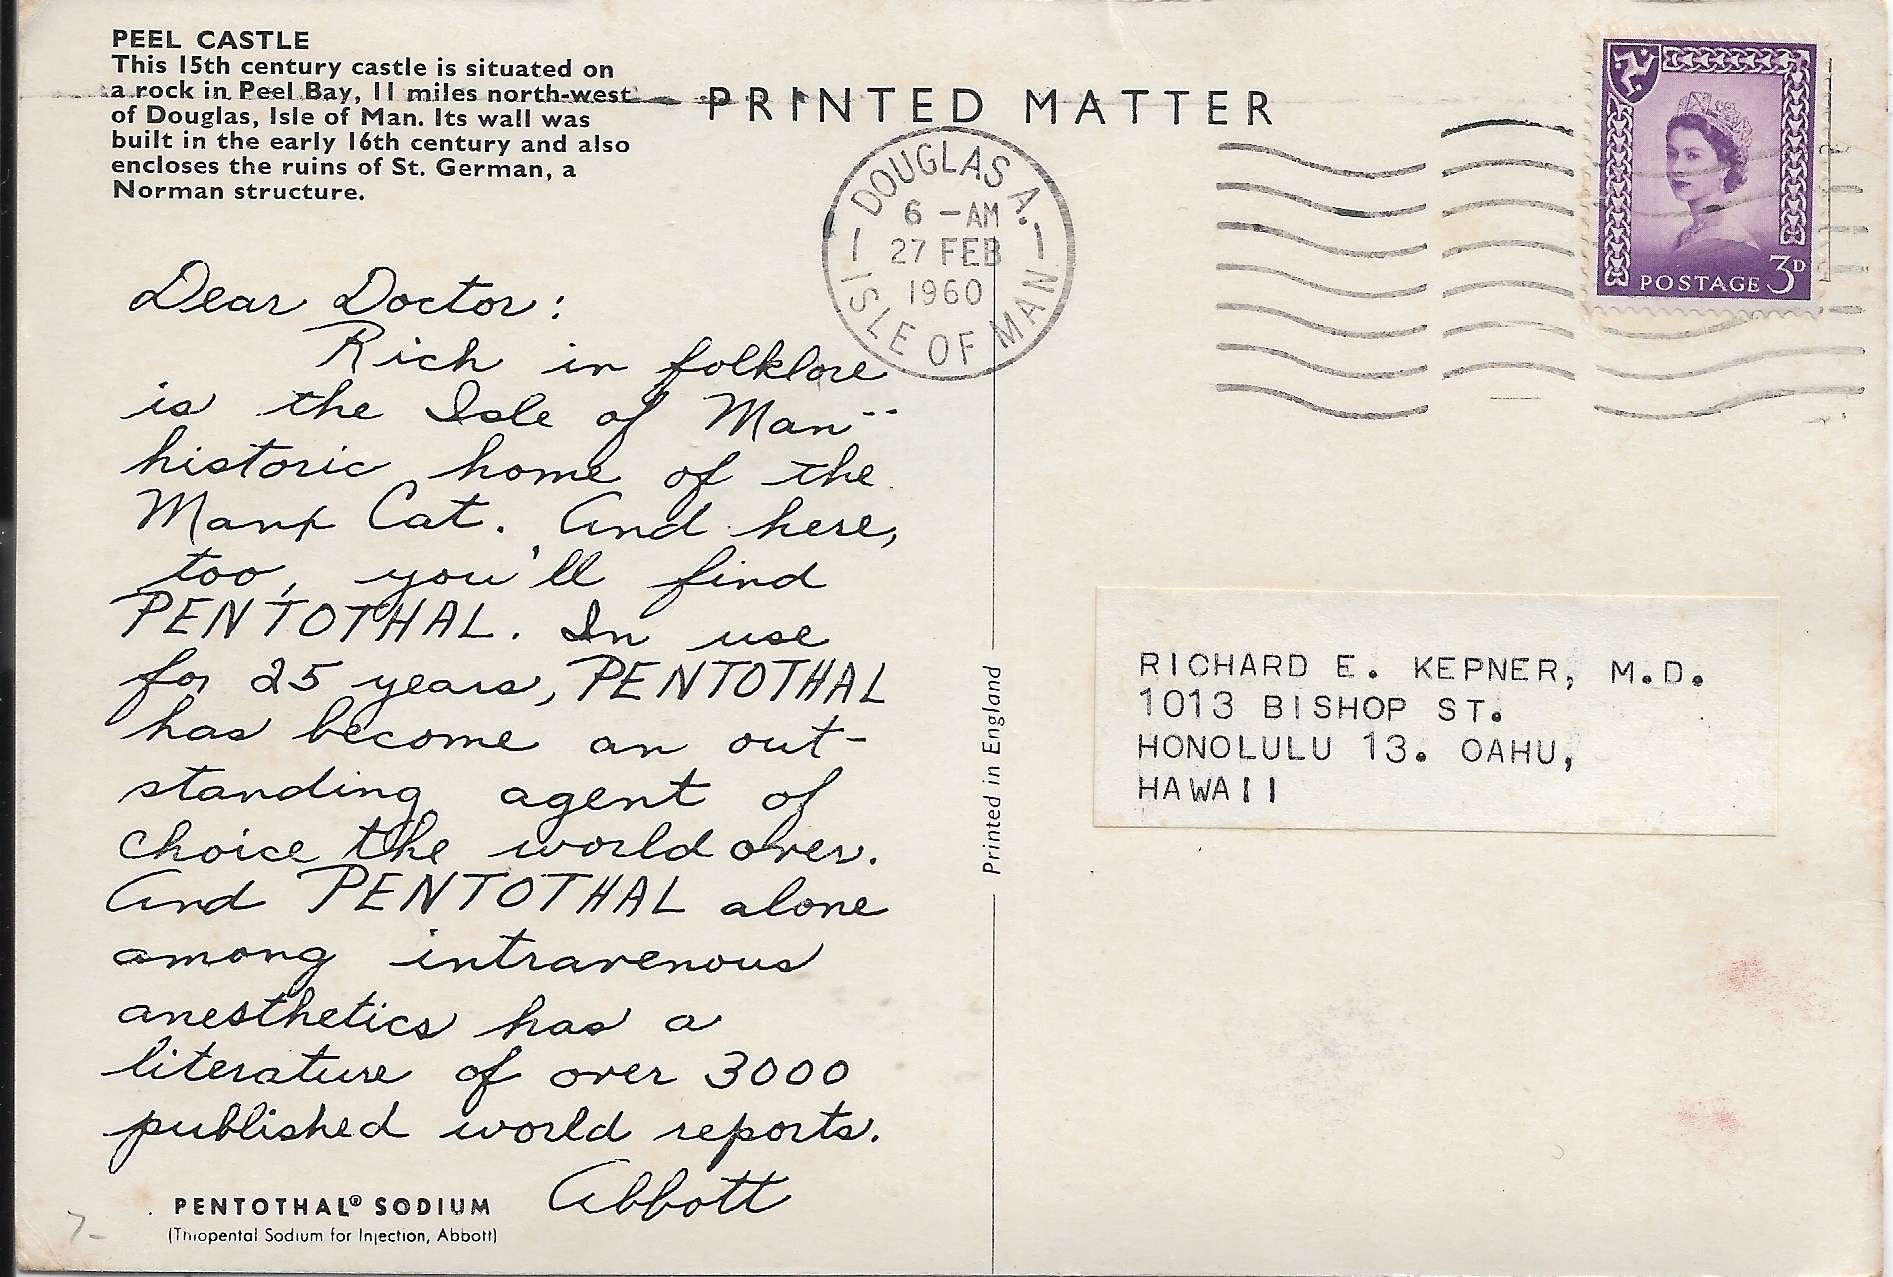 PEEL CASTLE
This 15th century castle is situated on
a rock in Peel Bay, 11 miles north-west
of Douglas, Isle of Man. Its wall was
built in the early 16th century and also
encloses the ruins of St. German, a
Norman structure.
PRINTED MATTER
DOUGLAS A.
6 - AM
27 FEB
1960
ISLE OF MAN
POSTAGE 3D
Dear Doctor:
Rich in folklore
is the Isle of Man--
historic home of the
Manx Cat. And here,
too, you'll find
PENTOTHAL. In use
for 25 years, PENTOTHAL
has become an out-
standing agent of
choice the world over.
And PENTOTHAL alone
among intravenous
anesthetics has a
literature of over 3000
published world reports.
Abbott
PENTOTHAL® SODIUM
(Thiopental Sodium for Injection, Abbott)
7-
Printed in England
RICHARD E. KEPNER, M.D.
1013 BISHOP ST.
HONOLULU 13. OAHU,
HAWAII